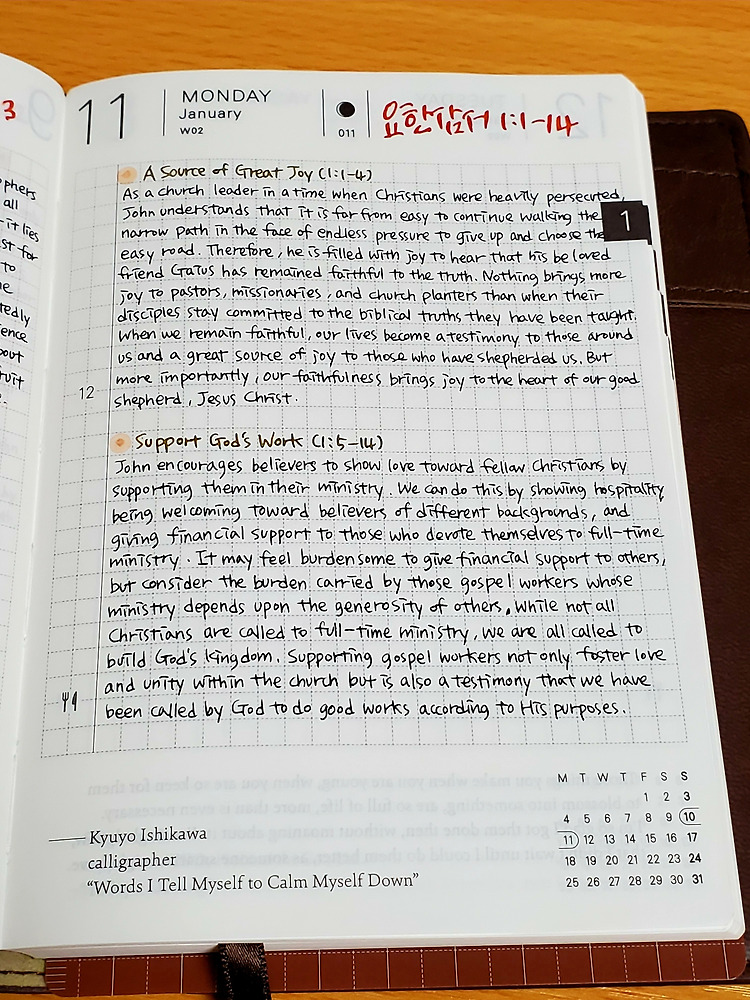 3
9
phers
all
it lies
st for
to
tedly
ence
bout
ruit
11
MONDAY
January
W02
011
요한삼서 1:1-14
A Source of Great Joy (1:1-4)
As a church leader in a time when Christians were heavily persecuted,
John understands that it is far from easy to continue walking the
narrow path in the face of endless pressure to give up and choose the
1
easy road. Therefore, he is filled with joy to hear that his beloved
friend Gaius has remained faithful to the truth. Nothing brings more
joy to pastors, missionaries, and church planters than when their
disciples stay committed to the biblical truths they have been taught.
When we remain faithful, our lives become a testimony to those around
us and a great source of joy to those who have shepherded us. But
more importantly, our faithfulness brings joy to the heart of our good
12
shepherd, Jesus Christ.
Support God's Work (1:5-14)
John encourages believers to show love toward fellow Christians by
supporting them in their ministry. We can do this by showing hospitality
being welcoming toward believers of different backgrounds, and
giving financial support to those who devote themselves to full-time
ministry. It may feel burdensome to give financial support to others,
but consider the burden carried by those gospel workers whose
ministry depends upon the generosity of others. While not all
Christians are called to full-time ministry, we are all called to
build God's kingdom. Supporting gospel workers not only foster love
and unity within the church but is also a testimony that we have
been called by God to do good works according to His purposes.
M T W T F S S
1 2 3
4 5 6 7 8 9 10
11 12 13 14 15 16 17
18 19 20 21 22 23 24
25 26 27 28 29 30 31
Kyuyo Ishikawa
calligrapher
“Words I Tell Myself to Calm Myself Down”